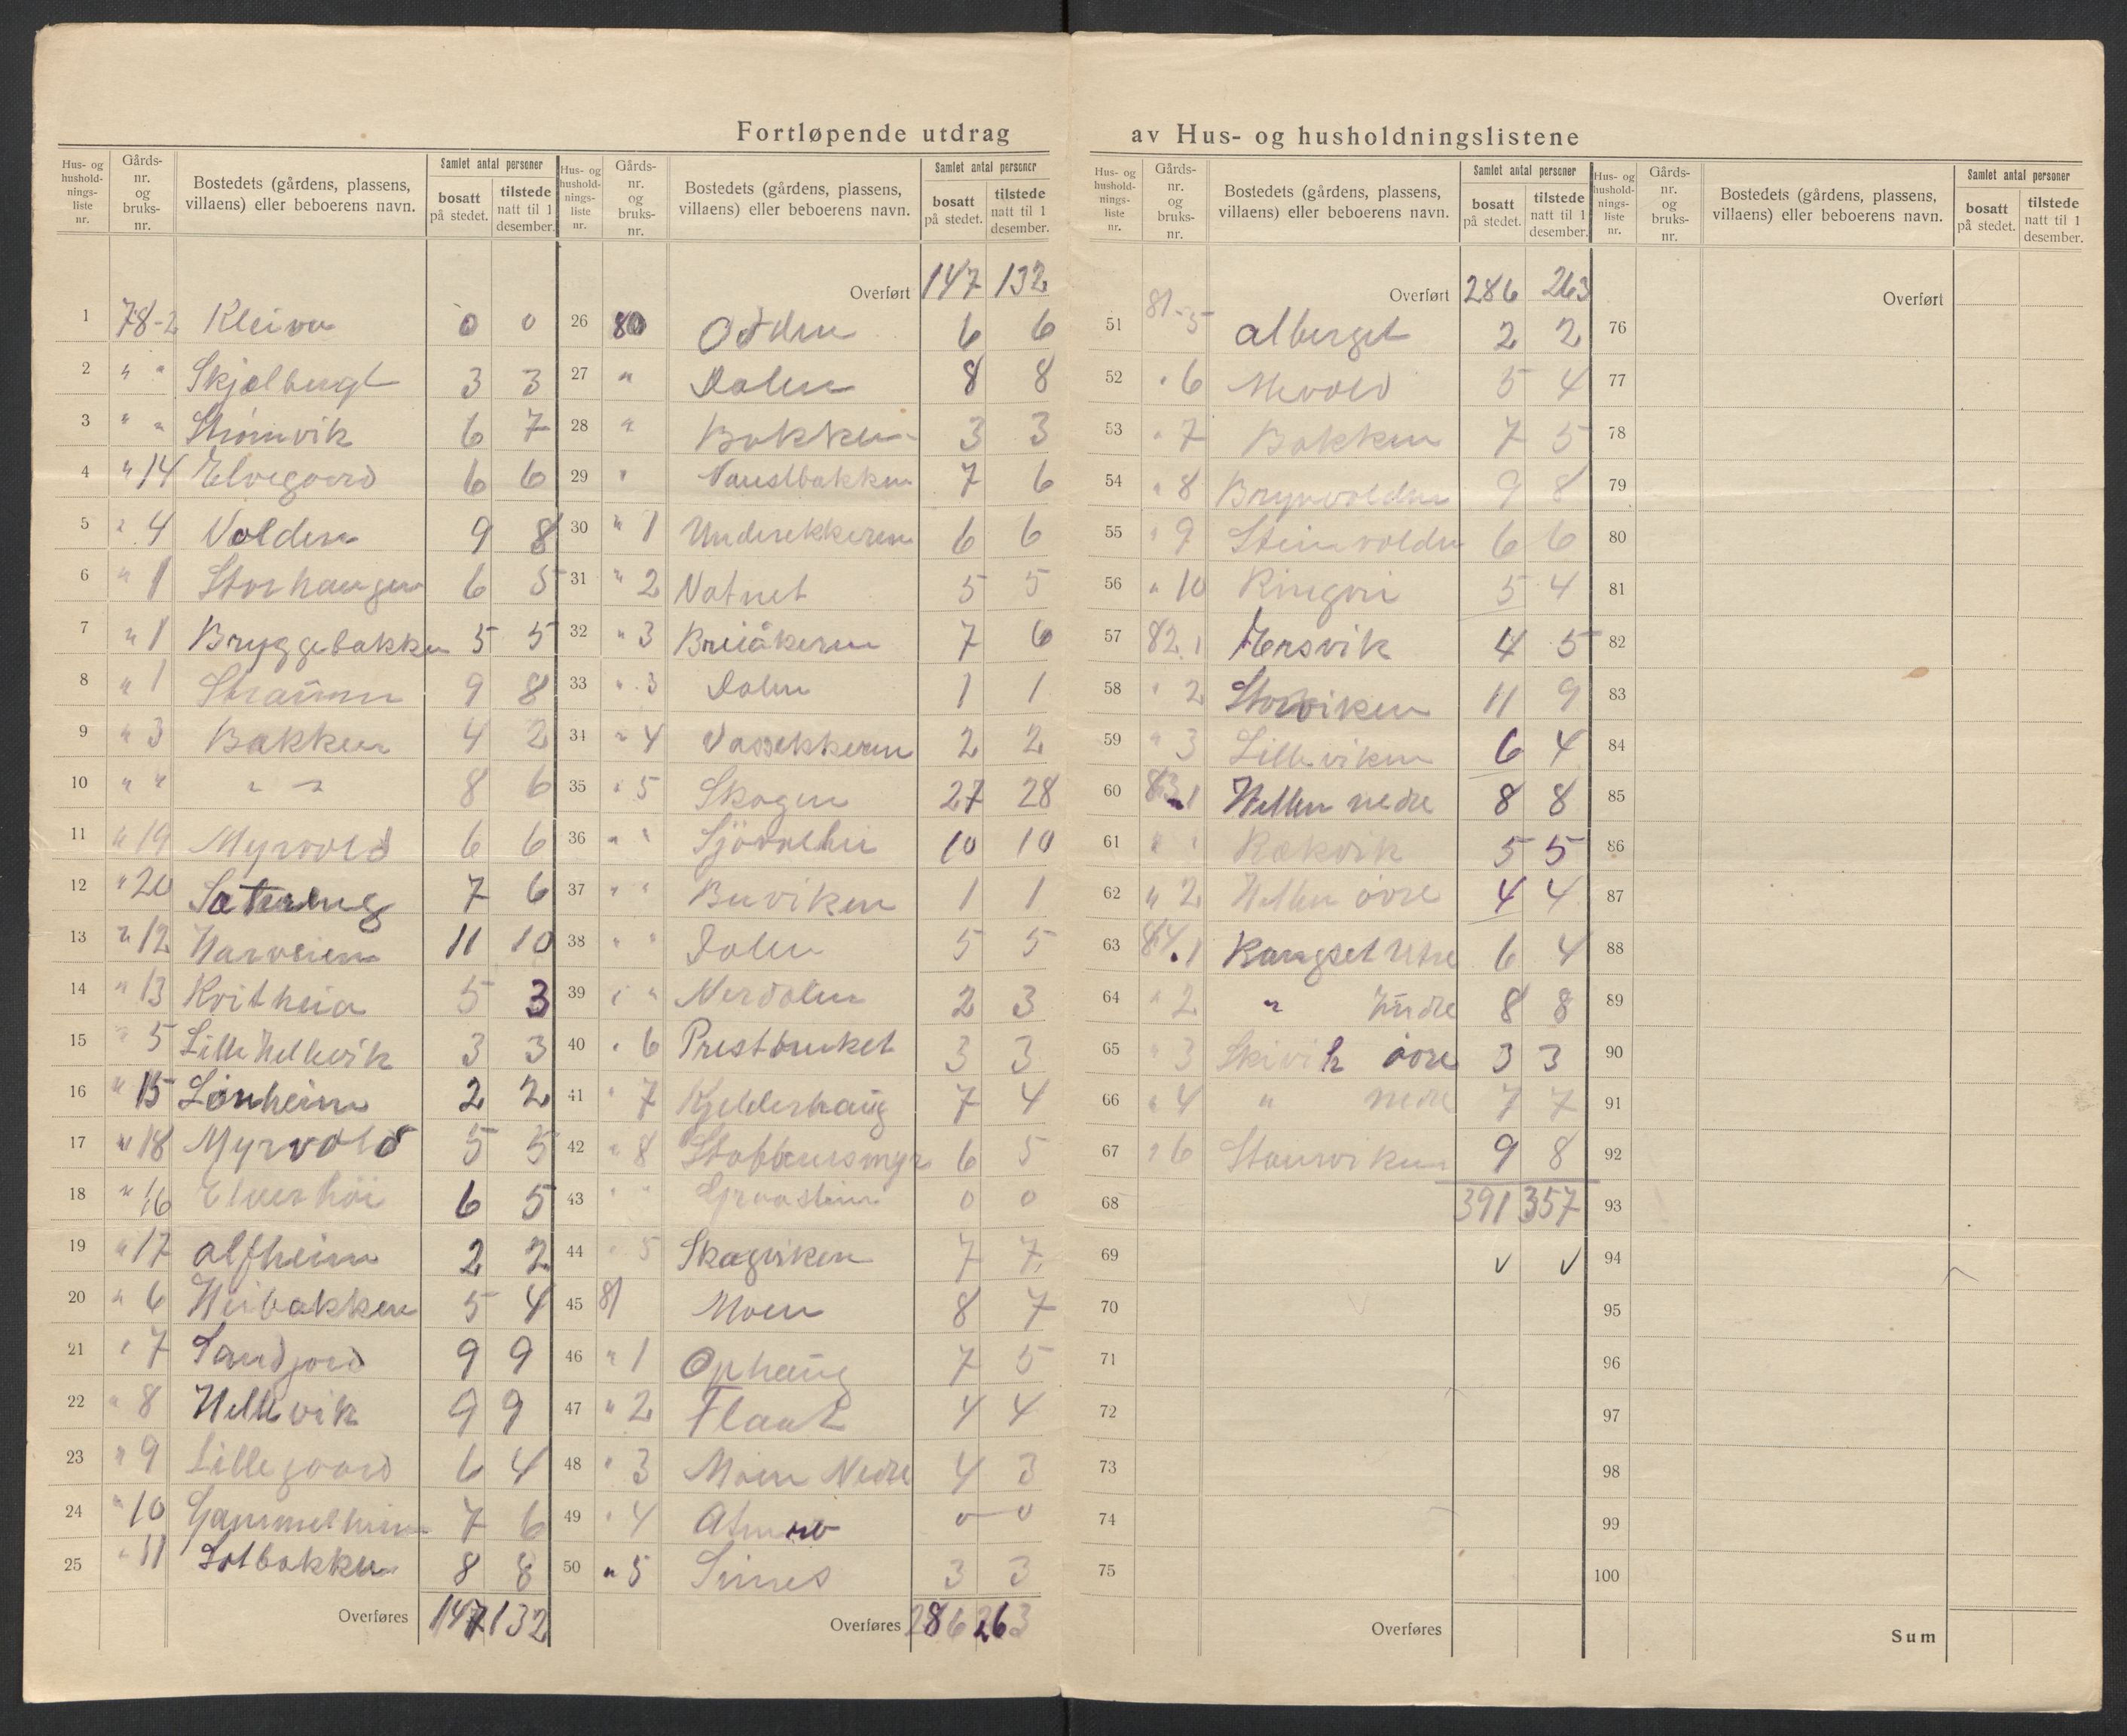 Fortløpende utdrag av Hus- og husholdningslistene
Hus- og hushold-nings-liste nr. | Gårds-nr. og bruks-nr. | Bostedets (gårdens, plassens, villaens) eller beboerens navn. | Samlet antal personer: bosatt på stedet. | tilstede natt til 1 desember.
1 78-2 Kleiva 0 0
2 " " Skjelbergt 3 3
3 " " Strømvik 6 7
4 " 14 Elvegaard 6 6
5 " 4 Volden 9 8
6 " 1 Storhaugen 6 5
7 " 1 Bryggebakken 5 5
8 " 1 Straumen 9 8
9 " 3 Bakken 4 2
10 " " " " 8 6
11 " 19 Myrvold 6 6
12 " 20 7 6
13 " 12 Harveien 11 10
14 " 13 Kvitheia 5 3
15 " 5 Lille Hellevik 3 3
16 " 15 Lönheim 2 2
17 " 18 Myrvold 5 5
18 " 16 Elverhöi 6 5
19 " 17 Alfheim 2 2
20 " 6 Heibakken 5 4
21 " 7 Sandjord 9 9
22 " 8 Hellevik 9 9
23 " 9 Lillegaard 6 4
24 " 10 Gammelheim 7 6
25 " 11 8 8
Overføres 147 132
Hus- og hushold-nings-liste nr. | Gårds-nr. og bruks-nr. | Bostedets (gårdens, plassens, villaens) eller beboerens navn. | Samlet antal personer: bosatt på stedet. | tilstede natt til 1 desember.
Overført 147 132
26 80 Odden 6 6
27 " Dalen 8 8
28 " Bakken 3 3
29 " Naustbakken 7 6
30 " 1 Underekkeren 6 6
31 " 2 Vatnet 5 5
32 " 3 Breiåkeren 7 6
33 " 3 Dalen 1 1
34 " 4 Vassekkeren 2 2
35 " 5 Skogen 27 28
36 " " 10 10
37 " " Buviken 1 1
38 " " Dalen 5 5
39 " " Nerdalen 2 3
40 " 6 Prestbruket 3 3
41 " 7 Kjelderhaug 7 4
42 " 8 6 5
43 " " Graasteine 0 0
44 " 5 Skagviken 7 7
45 81 Moen 8 7
46 " 1 Ophaug 7 5
47 " 2 Flaat 4 4
48 " 3 Moen Nedre 4 3
49 " 4 0 0
50 " 5 Simes 3 3
Overføres 286 263
Hus- og hushold-nings-liste nr. | Gårds-nr. og bruks-nr. | Bostedets (gårdens, plassens, villaens) eller beboerens navn. | Samlet antal personer: bosatt på stedet. | tilstede natt til 1 desember.
Overført 286 263
51 81-5 Alberget 2 2
52 " 6 Mevold 5 4
53 " 7 Bakken 7 5
54 " 8 Brynvolden 9 8
55 " 9 Steinvolden 6 6
56 " 10 Ringvei 5 4
57 82.1 Hersvik 4 5
58 " 2 Storviken 11 9
59 " 3 Lilleviken 6 4
60 83.1 Hellen nedre 8 8
61 " " Rækvik 5 5
62 " 2 Hellen øvre 4 4
63 84.1 Rangset Utre 6 4
64 " 2 " Indre 8 8
65 " 3 Skivik øvre 3 3
66 " 4 " nedre 7 7
67 " 6 Staurviken 9 8
68 391 357
69 v v
70
71
72
73
74
75
Overføres
Hus- og hushold-nings-liste nr. | Gårds-nr. og bruks-nr. | Bostedets (gårdens, plassens, villaens) eller beboerens navn. | Samlet antal personer: bosatt på stedet. | tilstede natt til 1 desember.
Overført
76
77
78
79
80
81
82
83
84
85
86
87
88
89
90
91
92
93
94
95
96
97
98
99
100
Sum